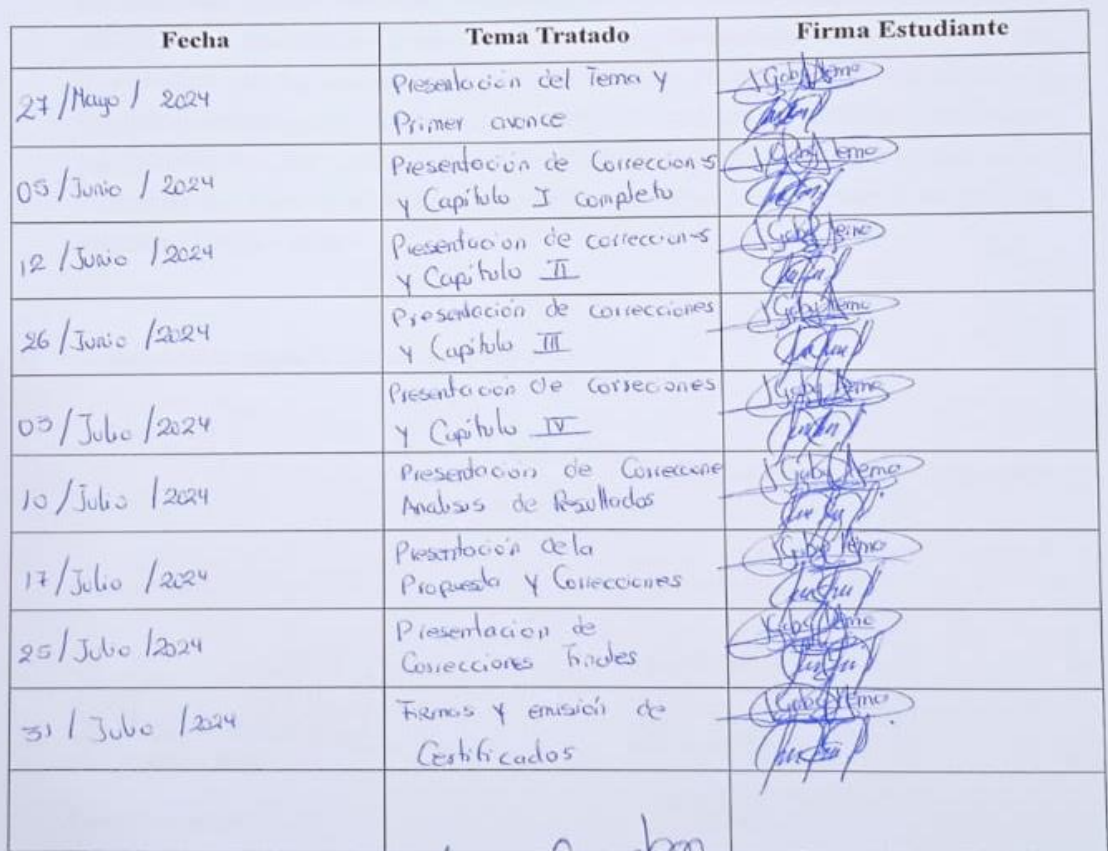 Fecha Tema Tratado Firma Estudiante
27/Mayo/2024 Presentación del Tema y
Primer avance
05/Junio/2024 Presentación de Correcciones
y Capítulo I completo
12/Junio/2024 Presentacion de correcciones
y Capítulo II
26/Junio/2024 Presentación de correcciones
y Capítulo III
03/Julio/2024 Presentación de Correciones
y Capítulo IV
10/Julio/2024 Presentación de Correccione
Analisis de Resultados
17/Julio/2024 Presentación de la
Propuesta y Correcciones
25/Julio/2024 Presentacion de
Correcciones finales
31/Julio/2024 Firmas y emisión de
Certificados